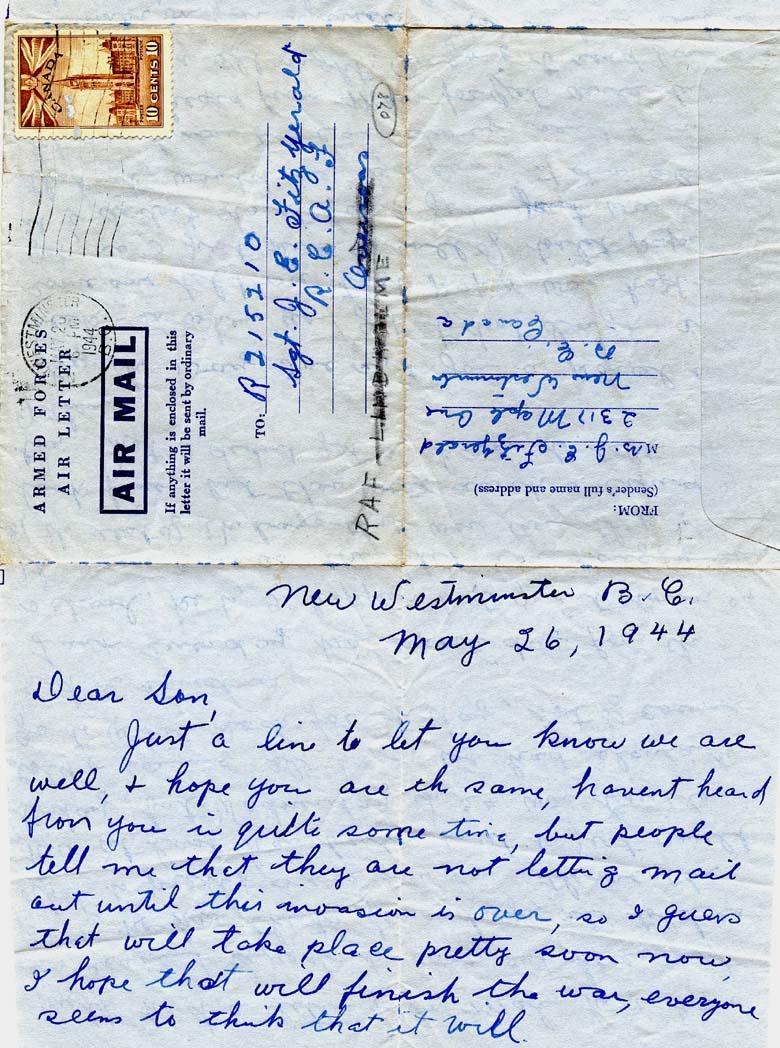 CANADA
10 CENTS 10
1944
B.C.
ARMED FORCES
AIR LETTER
AIR MAIL
If anything is enclosed in this
letter it will be sent by ordinary
mail.
TO: R 215210
Sgt. J. E. FitzGerald
R. C. A. F
Overseas
RAF -
078
FROM:
(Sender's full name and address)
Mrs. J. E. Fitzgerald
2311 Maple Ave
New Westminster
B. C.
Canada
New Westminster B.C.
May 26, 1944
Dear Son,
Just a line to let you know we are
well, & hope you are th same, havent heard
from you in quite some time, but people
tell me that they are not letting mail
out until this invasion is over, so I guess
that will take place pretty soon now,
I hope that will finish the war, everyone
seems to think that it will.